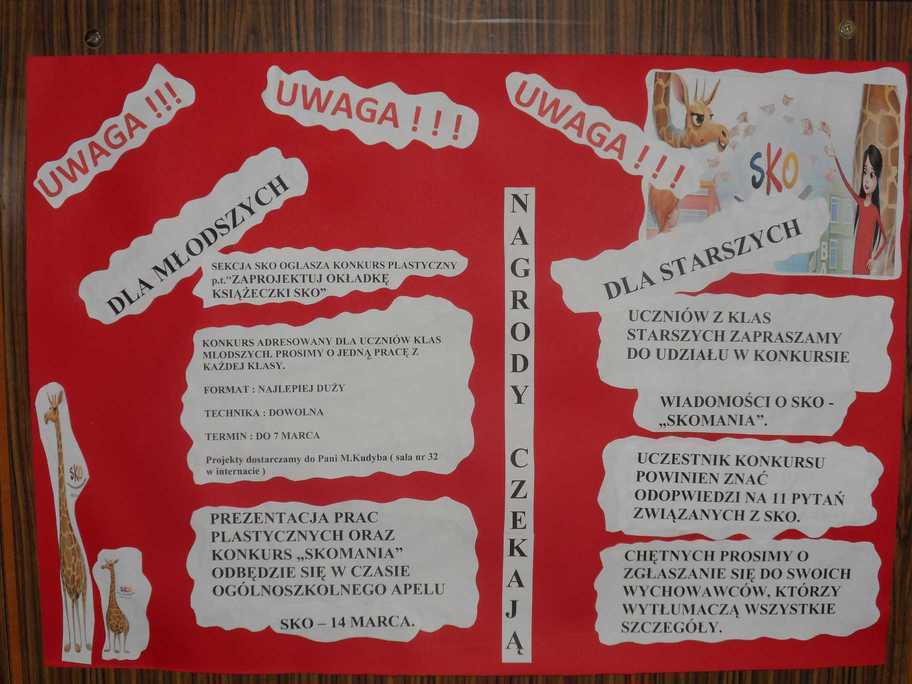 UWAGA !!!
UWAGA ! ! !
UWAGA ! ! !
sko
DLA MŁODSZYCH
SEKCJA SKO OGŁASZA KONKURS PLASTYCZNY
p.t."ZAPROJEKTUJ OKŁADKĘ
KSIĄŻECZKI SKO"
KONKURS ADRESOWANY DLA UCZNIÓW KLAS
MŁODSZYCH. PROSIMY O JEDNĄ PRACĘ Z
KAŻDEJ KLASY.
FORMAT : NAJLEPIEJ DUŻY
TECHNIKA : DOWOLNA
TERMIN : DO 7 MARCA
Projekty dostarczamy do Pani M.Kudyba ( sala nr 32
w internacie )
PREZENTACJA PRAC
PLASTYCZNYCH ORAZ
KONKURS „SKOMANIA”
ODBĘDZIE SIĘ W CZASIE
OGÓLNOSZKOLNEGO APELU
SKO – 14 MARCA.
sko
NAGRODY CZEKAJĄ
DLA STARSZYCH
UCZNIÓW Z KLAS
STARSZYCH ZAPRASZAMY
DO UDZIAŁU W KONKURSIE
WIADOMOŚCI O SKO -
„SKOMANIA”.
UCZESTNIK KONKURSU
POWINIEN ZNAĆ
ODOPWIEDZI NA 11 PYTAŃ
ZWIĄZANYCH Z SKO.
CHĘTNYCH PROSIMY O
ZGŁASZANIE SIĘ DO SWOICH
WYCHOWAWCÓW, KTÓRZY
WYTŁUMACZĄ WSZYSTKIE
SZCZEGÓŁY.